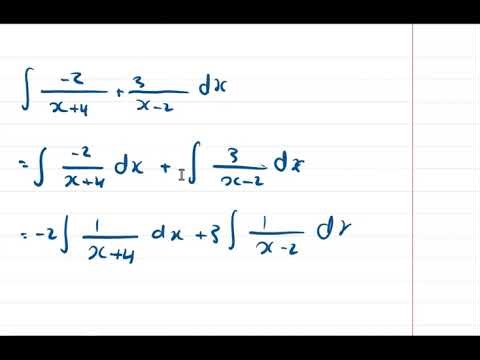 ∫ -2/(x+4) + 3/(x-2) dx
= ∫ -2/(x+4) dx + ∫ 3/(x-2) dx
= -2 ∫ 1/(x+4) dx + 3 ∫ 1/(x-2) dx